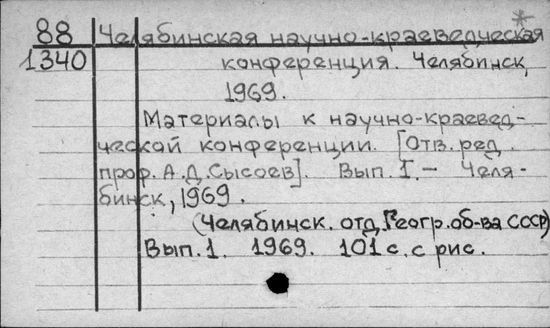 *
88 Челябинская научно-краеведческая
1340 конференция. Челябинск,
1969.
Материалы к научно-краевед-
ческой конференции. [Отв. ред.
проф. А.Д. Сысоев]. Вып. I. – Челя-
бинск, 1969.
(Челябинск. отд. Геогр. об-ва СССР)
Вып. 1. 1969. 101 с. с рис.